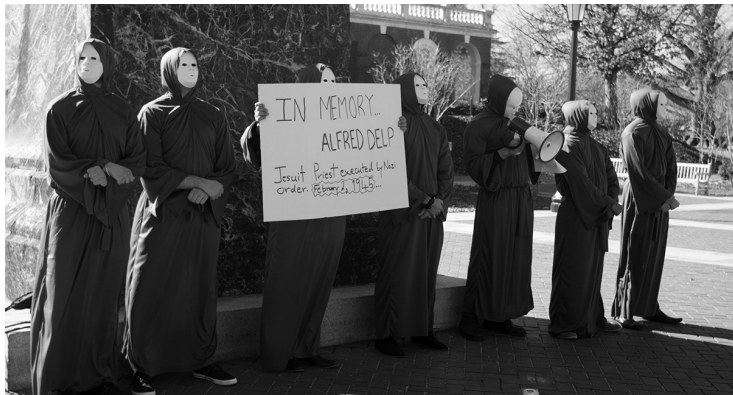 IN MEMORY...
ALFRED DELP
Jesuit Priest executed by Nazi
order. February 2, 1945...